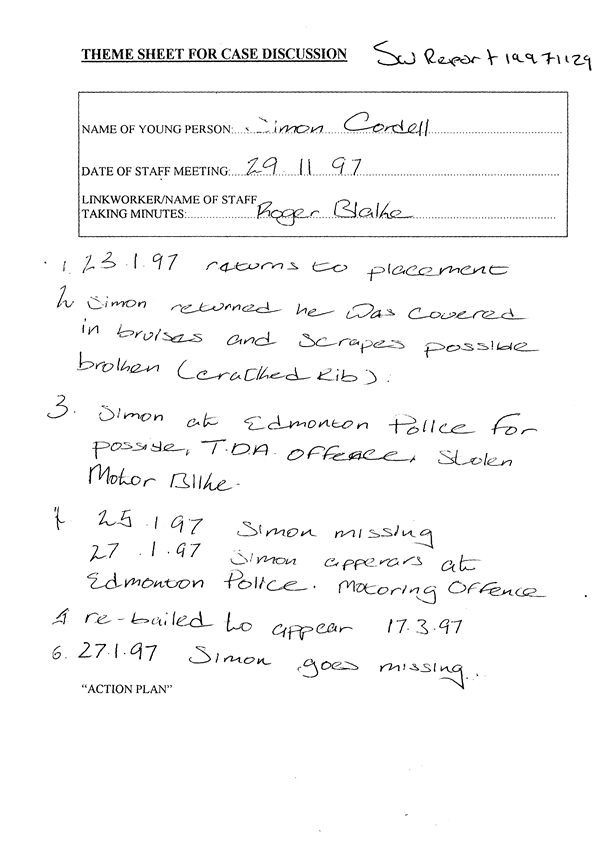 THEME SHEET FOR CASE DISCUSSION SW Report 19971129
NAME OF YOUNG PERSON: Simon Cordell
DATE OF STAFF MEETING: 29 11 97
LINKWORKER/NAME OF STAFF
TAKING MINUTES: Roger Blake
1. 23.1.97 returns to placement
2 Simon returned he was covered
in bruises and scrapes possible
broken (cracked Rib).
3. Simon at Edmonton Police for
possible, T.D.A. offence, Stolen
Motor Bike.
4. 25.1.97 Simon missing
27.1.97 Simon apperars at
Edmonton Police. Motoring Offence
5 re-bailed to appear 17.3.97
6. 27.1.97 Simon goes missing..
"ACTION PLAN"